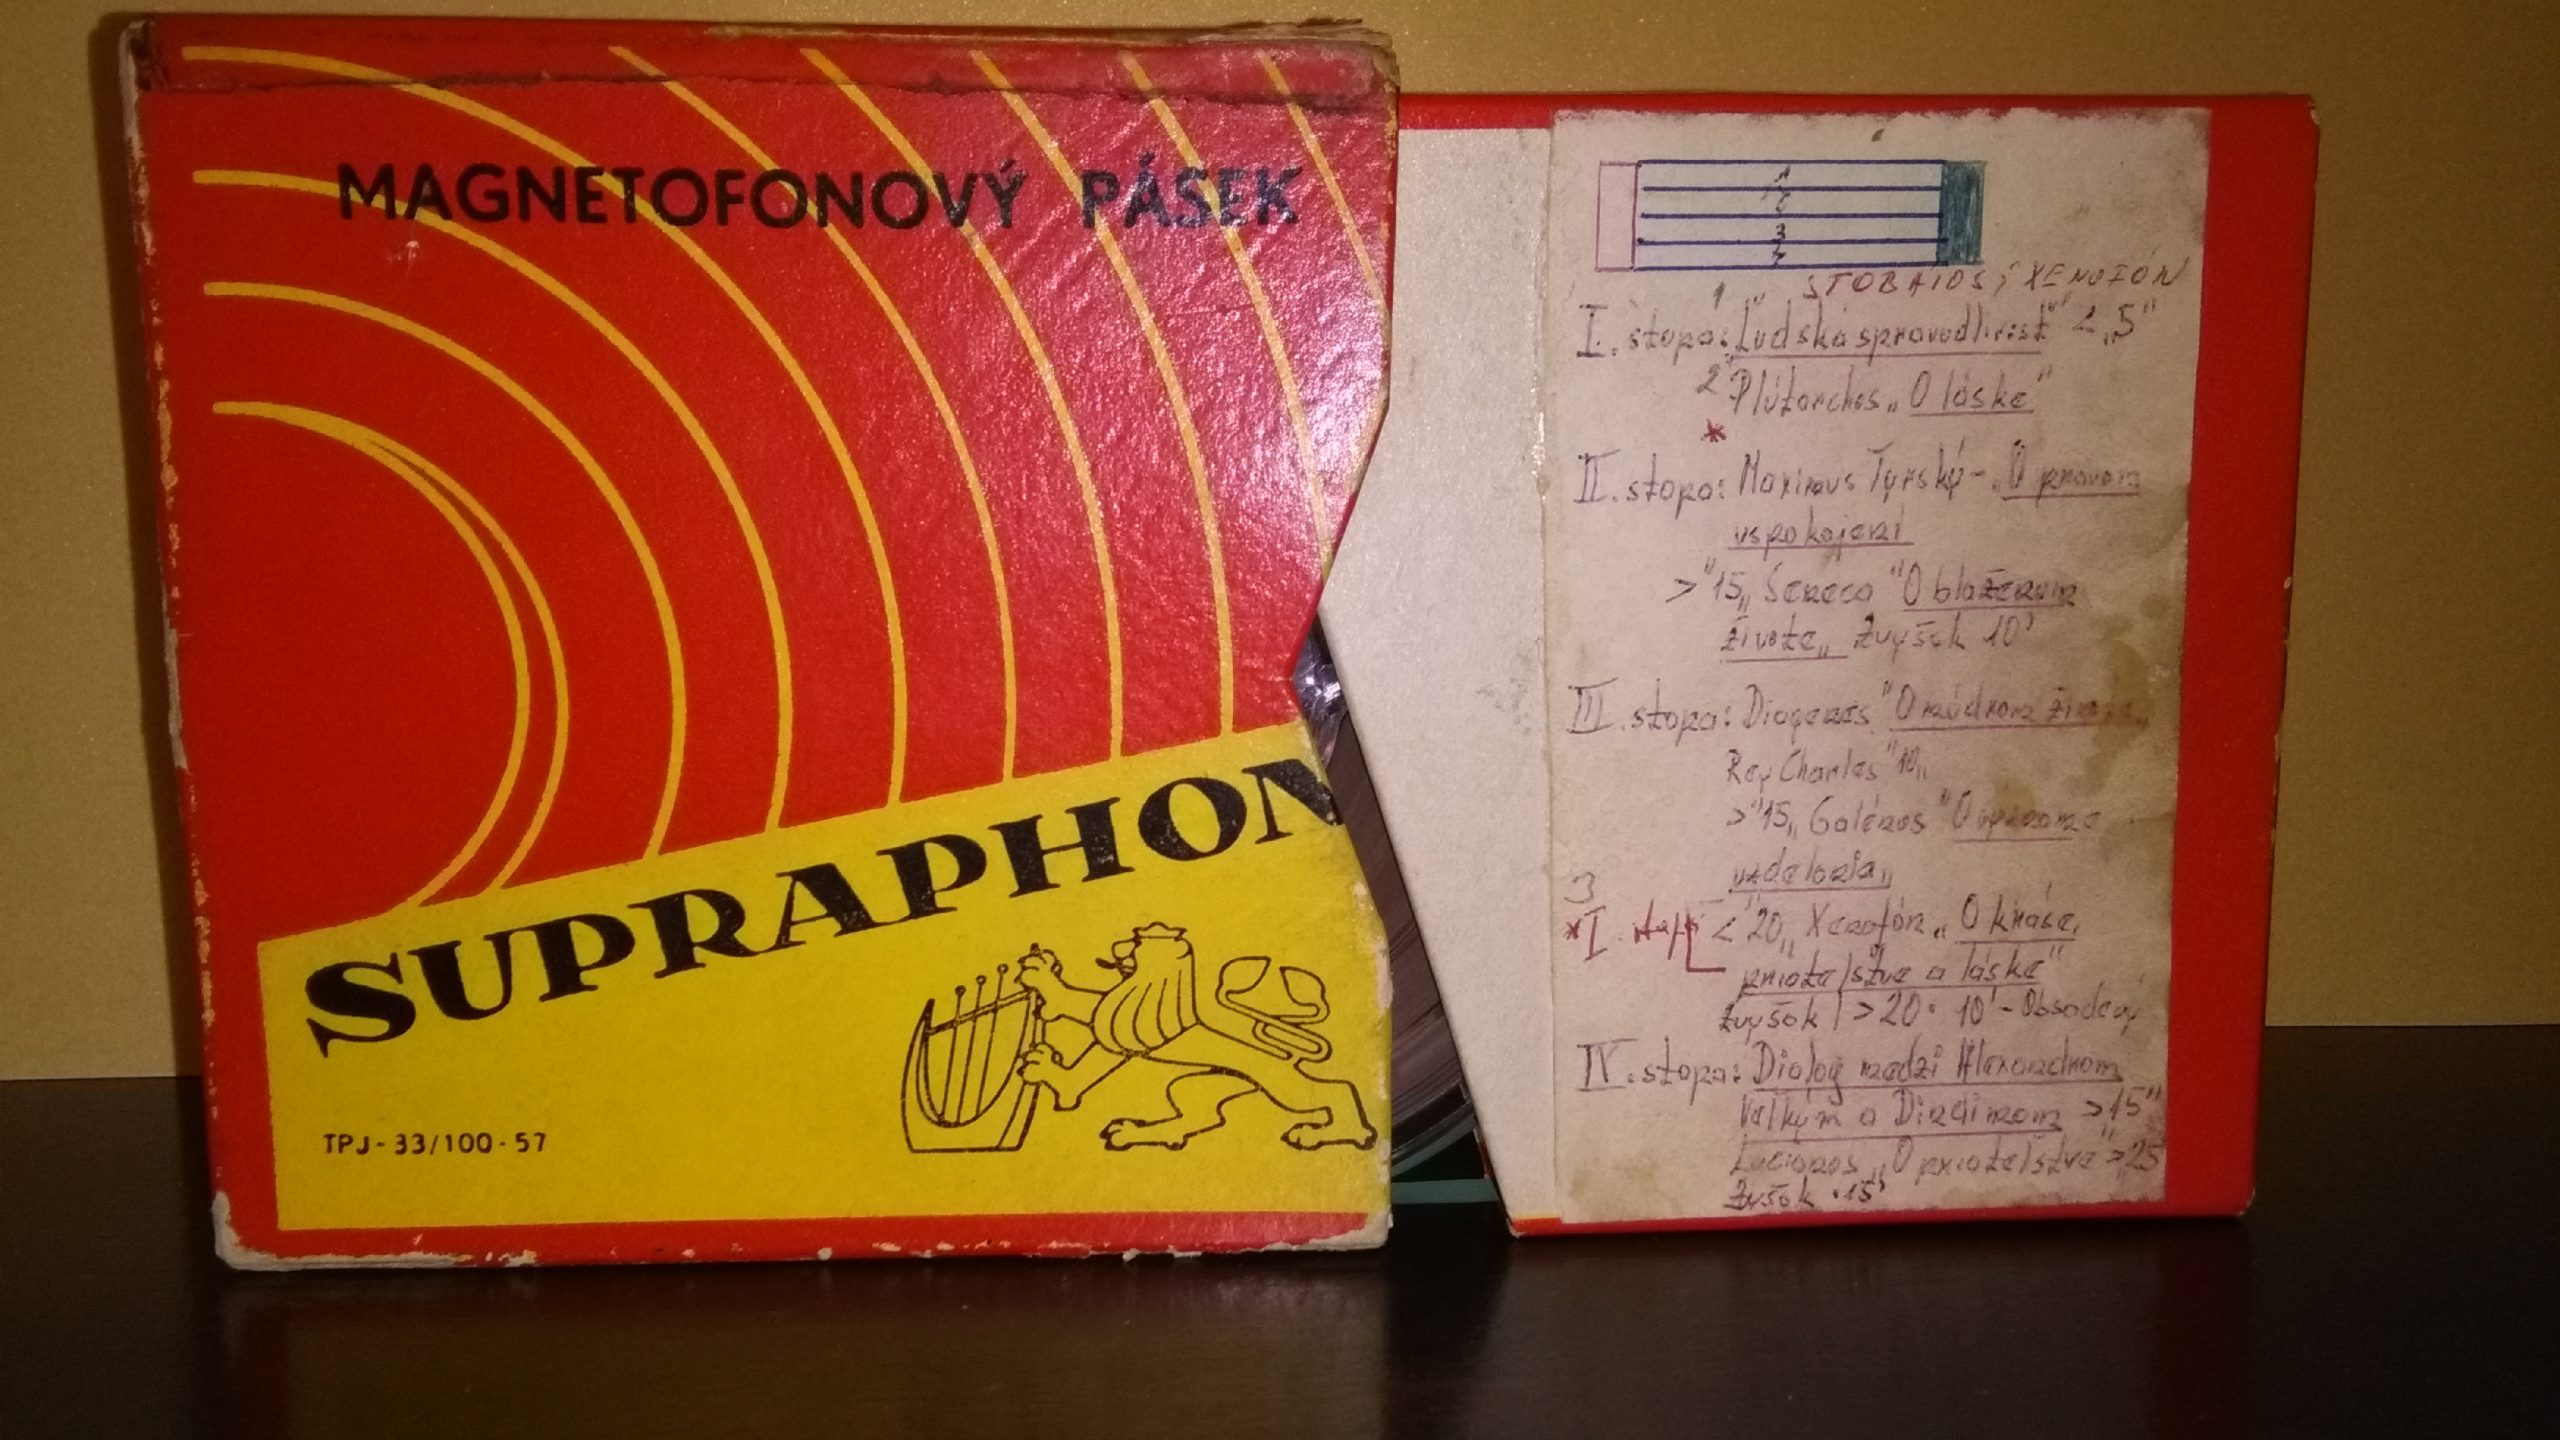 MAGNETOFONOVÝ PÁSEK
SUPRAPHON
TPJ-33/100-57
1
2
3
STOBAIOS, XENOFÓN
I. stopa: 1 "Ľudská spravodlivosť" < „5"
2 Plútarchos „O láske"
*
II. stopa: Maximus Týrský - „O pravom
uspokojení
> "15„ Seneca "O blaženom
živote„ Zvyšok 10'
III. stopa: Diogenés "O múdrom živote„
Ray Charles "10„
> "15„ Galénos "O význame
vzdelania„
3
*I. stopa < "20„ Xenofón „O kráse,
priateľstve a láske"
Zvyšok > 20 · 10' - Obsadený
IV. stopa: Dialóg medzi Alexandrom
Veľkým a Dindimom > 15"
Lucianos „O priateľstve" > „25
Zvyšok · 15'